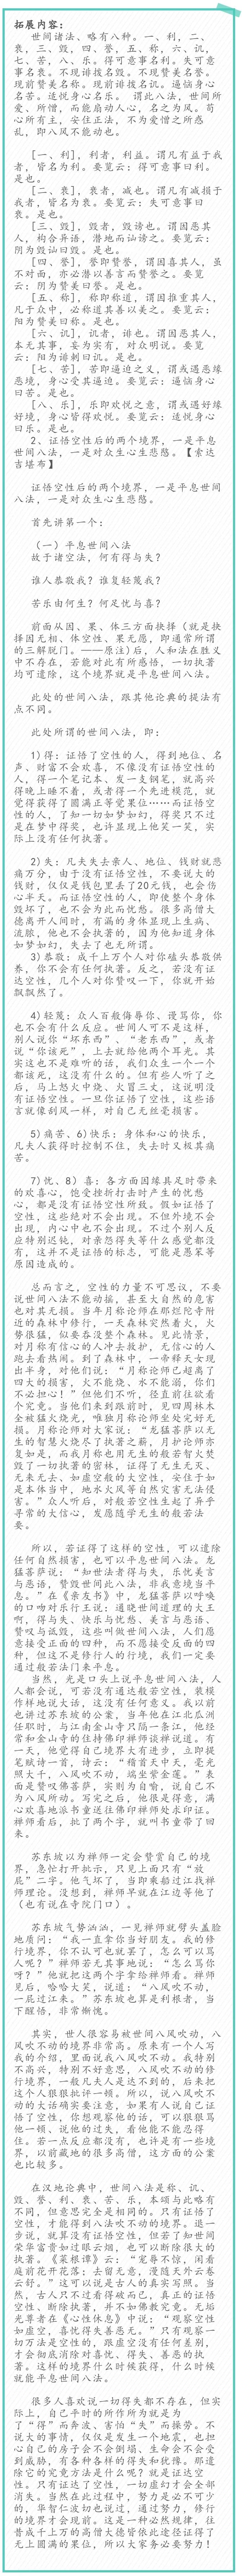 拓展内容：
世间诸法、略有八种。一、利，二、
衰，三、毁，四、誉，五、称，六、讥，
七、苦，八、乐。得可意事名利。失可意
事名衰。不现诽拨名毁。不现赞美名誉。
现前赞美名称。现前诽拨名讥。逼恼身心
名苦。适悦身心名乐。 谓此八法，世间所
爱、所憎，而能扇动人心，名之为风。苟
心所有主，安住正法，不为爱憎之所惑
乱，即八风不能动也。
[一、利]，利者，利益。谓凡有益于我
者，皆名为利。要览云：得可意事曰利。
是也。
[二、衰]，衰者，减也。谓凡有减损于
我者，皆名为衰。要览云：失可意事曰
衰。是也。
[三、毁]，毁者，毁谤也。谓因恶其
人，构合异语，潜地而讪谤之。要览云：
阴为毁讪曰毁。是也。
[四、誉]，誉即赞誉，谓因喜其人，虽
不对面，亦必潜以善言而赞誉之。要览
云：阴为赞美曰誉。是也。
[五、称]，称即称道，谓因推重其人，
凡于众中，必称道其善以美之。要览云：
阳为赞美曰称。是也。
[六、讥]，讥者，诽也。谓因恶其人，
本无其事，妄为实有，对众明说。要览
云：阳为诽刺曰讥。是也。
[七、苦]，苦即逼迫之义，谓或遇恶缘
恶境，身心受其逼迫。要览云：逼恼身心
曰苦。是也。
[八、乐]，乐即欢悦之意，谓或遇好缘
好境，身心皆得欢悦。要览云：适悦身心
曰乐。是也。
2、证悟空性后的两个境界，一是平息
世间八法，一是对众生心生悲愍。【索达
吉堪布】
证悟空性后的两个境界，一是平息世间
八法，一是对众生心生悲愍。
首先讲第一个：
（一）平息世间八法
故于诸空法，何有得与失？
谁人恭敬我？谁复轻蔑我？
苦乐由何生？何足忧与喜？
前面从因、果、体三方面抉择（就是抉
择因无相、体空性、果无愿，即通常所谓
的三解脱门。——原注）后，人和法在胜义
中不存在，若能对此有所感悟，一切执著
均可遣除，这个境界就是平息世间八法。
此处的世间八法，跟其他论典的提法有
点不同。
此处所谓的世间八法，即：
1)得：证悟了空性的人，得到地位、名
声、财富不会欢喜，不像没有证悟空性的
人，得一个笔记本、发一支钢笔，就高兴
得晚上睡不着，或者得一个先进模范，就
觉得获得了圆满正等觉果位……而证悟空
性的人，了知一切如梦如幻，得奖只不过
是在梦中得奖，也许显现上他笑一笑，实
际上没有任何执著。
2)失：凡夫失去亲人、地位、钱财就悲
痛万分，由于没有证悟空性，不要说大的
钱财，仅仅是钱包里丢了20元钱，也会伤
心半天。而证悟空性的人，即使整个身体
毁坏了，也不会为此而忧愁。很多高僧大
德离开人间时，有漏的身体显现上生病、
流脓，他也不会执著的，因为他知道身体
如梦如幻，失去了也无所谓。
3)恭敬：成千上万个人对你磕头恭敬供
养，你不会有任何执著。反之，若没有证
达空性，几个人对你赞叹一下，你就开始
飘飘然了。
4)轻蔑：众人百般侮辱你、谩骂你，你
也不会有什么反应。世间人可不是这样，
别人说你“坏东西”、“老东西”，或者
说“你该死”，上去就给他两个耳光。其
实这也不是难听的话，我们众生一个一个
都该死，这没有什么的。但有些人听了之
后，马上怒火中烧、火冒三丈，这说明没
有证悟空性。一旦你证悟了空性，这些语
言就像刮风一样，对自己无丝毫损害。
5)痛苦、6)快乐：身体和心的快乐，
凡夫人获得时控制不住，失去时又极其痛
苦。
7)忧、8）喜：各方面因缘具足时带来
的欢喜心，饱受挫折打击时产生的忧愁
心，都是没有证悟空性所致。假如证悟了
空性，这些绝对不会出现。不但外境不会
出现，内心中也不会出现。不过个别人反
应特别迟钝，对亲怨得失等什么感觉都没
有，这并不是证悟的标志，可能是愚笨等
原因造成的。
总而言之，空性的力量不可思议，不要
说世间八法不能动摇，甚至大自然的危害
也对其无损。当年月称论师在那烂陀寺附
近的森林中修行，一天森林突然着火，火
势很猛，似要吞没整个森林。见此情景，
对月称有信心的人冲去救护，无信心的人
跑去看热闹。到了森林中，一帝释天女现
出半身，对他们说：“月称论师已超离了
四大的损害，火不能烧、水不能溺，你们
不必担心！”但他们不听，径直前往欲看
个究竟。当他们来到跟前时，见四周林木
全被猛火烧光，唯独月称论师坐处完好无
损。月称论师对大家说：“龙猛菩萨以无
生的智慧火烧尽了执著之薪，月护论师亦
复如是，而我月称也用无生的般若智火焚
毁了一切执著的密林，证得了无生无灭、
无来无去、如虚空般的大空性，安住于如
是本体当中，地水火风等自然灾害无法侵
害。”众人听后，对般若空性生起了异乎
寻常的大信心，发愿随学无生的般若法
要。
所以，若证得了这样的空性，可以遣除
任何自然损害，也可以平息世间八法。龙
猛菩萨说：“知世法者得与失，乐忧美言
与恶语，赞毁世间此八法，非我意境当平
息。”在《亲友书》中，龙猛菩萨以呼唤
的口吻对乐行王说：通晓世间道理的大王
啊，得与失、快乐与忧愁、美言与恶语、
赞叹与诋毁，这些叫做世间八法，人们愿
意接受正面的四种，而不愿接受反面的四
种，但这不是修行人的行境，我们一定要
通过般若法门来平息。
当然，光是口头上说平息世间八法，人
人都会说。可若没有通达般若空性，装模
作样地说大话，这没有任何意义。我以前
也讲过苏东坡的公案，当年他在江北瓜洲
任职时，与江南金山寺只隔一条江，他经
常和金山寺的住持佛印禅师谈禅说道。有
一天，他觉得自己境界大有进步，立即提
笔赋诗一首，诗云：“稽首天中天，毫光
照大千，八风吹不动，端坐紫金莲。”表
面是赞叹佛菩萨，实则为自喻，说自己不
为八风所动。写完之后，他很是得意，满
心欢喜地派书童送往佛印禅师处求印证。
禅师看后，批了两个字，就叫书童带了回
来。
苏东坡以为禅师一定会赞赏自己的境
界，急忙打开批示，只见上面只有“放
屁”二字。他气坏了，当即乘船过江找禅
师理论。没想到，禅师早就在江边等他了
（也有说在寺院门口）。
苏东坡气势汹汹，一见禅师就劈头盖脸
地质问：“我一直拿你当好朋友。我的修
行境界，你不认可也就罢了，怎么可以骂
人呢？”禅师若无其事地说：“怎么骂你
呀？”他就把这两个字拿给禅师看。禅师
见后，哈哈大笑，说道：“八风吹不动，
一屁过江来。”苏东坡也算是利根者，当
下醒悟，非常惭愧。
其实，世人很容易被世间八风吹动，八
风吹不动的境界非常高。原来有一个人写
我的介绍，里面说我八风吹不动。我特别
不高兴，特别不好意思，八风吹不动的修
行境界，一般凡夫人是达不到的，后来把
这个人狠狠批评一顿。所以，说八风吹不
动的大话确实要注意，如果有人说自己证
悟了空性，你想观察他的话，可以狠狠骂
他一顿、说他的过失，看他能不能忍得
住。若一点反应都没有，也许是有一些境
界，以前藏地的很多高僧，这方面的公案
也比较多。
在汉地论典中，世间八法是称、讥、
毁、誉、利、衰、苦、乐，本颂与此略有
不同，但意思完全是相同的。只有证悟了
空性，才能得到八法吹不动的境界。退一
步说，就算没有证悟空性，但若了知世间
荣华富贵如过眼云烟，也可以断除很大的
执著。《菜根谭》云：“宠辱不惊，闲看
庭前花开花落；去留无意，漫随天外云卷
云舒。”这可以说是古人的真实写照。当
然，古人只不过看得破而已，真正的证悟
空性、断除执著，还不如他们所说。无垢
光尊者在《心性休息》中说：“观察空性
如虚空，喜忧得失善恶无。”只有观察一
切万法是空性的，跟虚空没有任何差别，
才会彻底消除对喜忧、得失、善恶的执
著。这样的境界什么时候获得，什么时候
就能平息世间八法。
很多人喜欢说一切得失都不存在，但实
际上，自己平时的所作所为就是为
了“得”而奔波、害怕“失”而操劳。不
说大的事情，仅仅是发生一个地震，也担
心自己的房子会不会倒塌、生命会不会受
到威胁，有各种各样的得失和忧愁。那遣
除它的究竟方法是什么呢？就是证达空
性。只有证达了空性，一切虚幻才会全部
消失。当然在此过程中，努力是必不可少
的，华智仁波切也说过，通过努力，修行
的境界才会现前。所以这一种必然规律，往
昔成千上万的高僧大德皆依此途径证得了
无上圆满的果位，所以大家务必要努力！